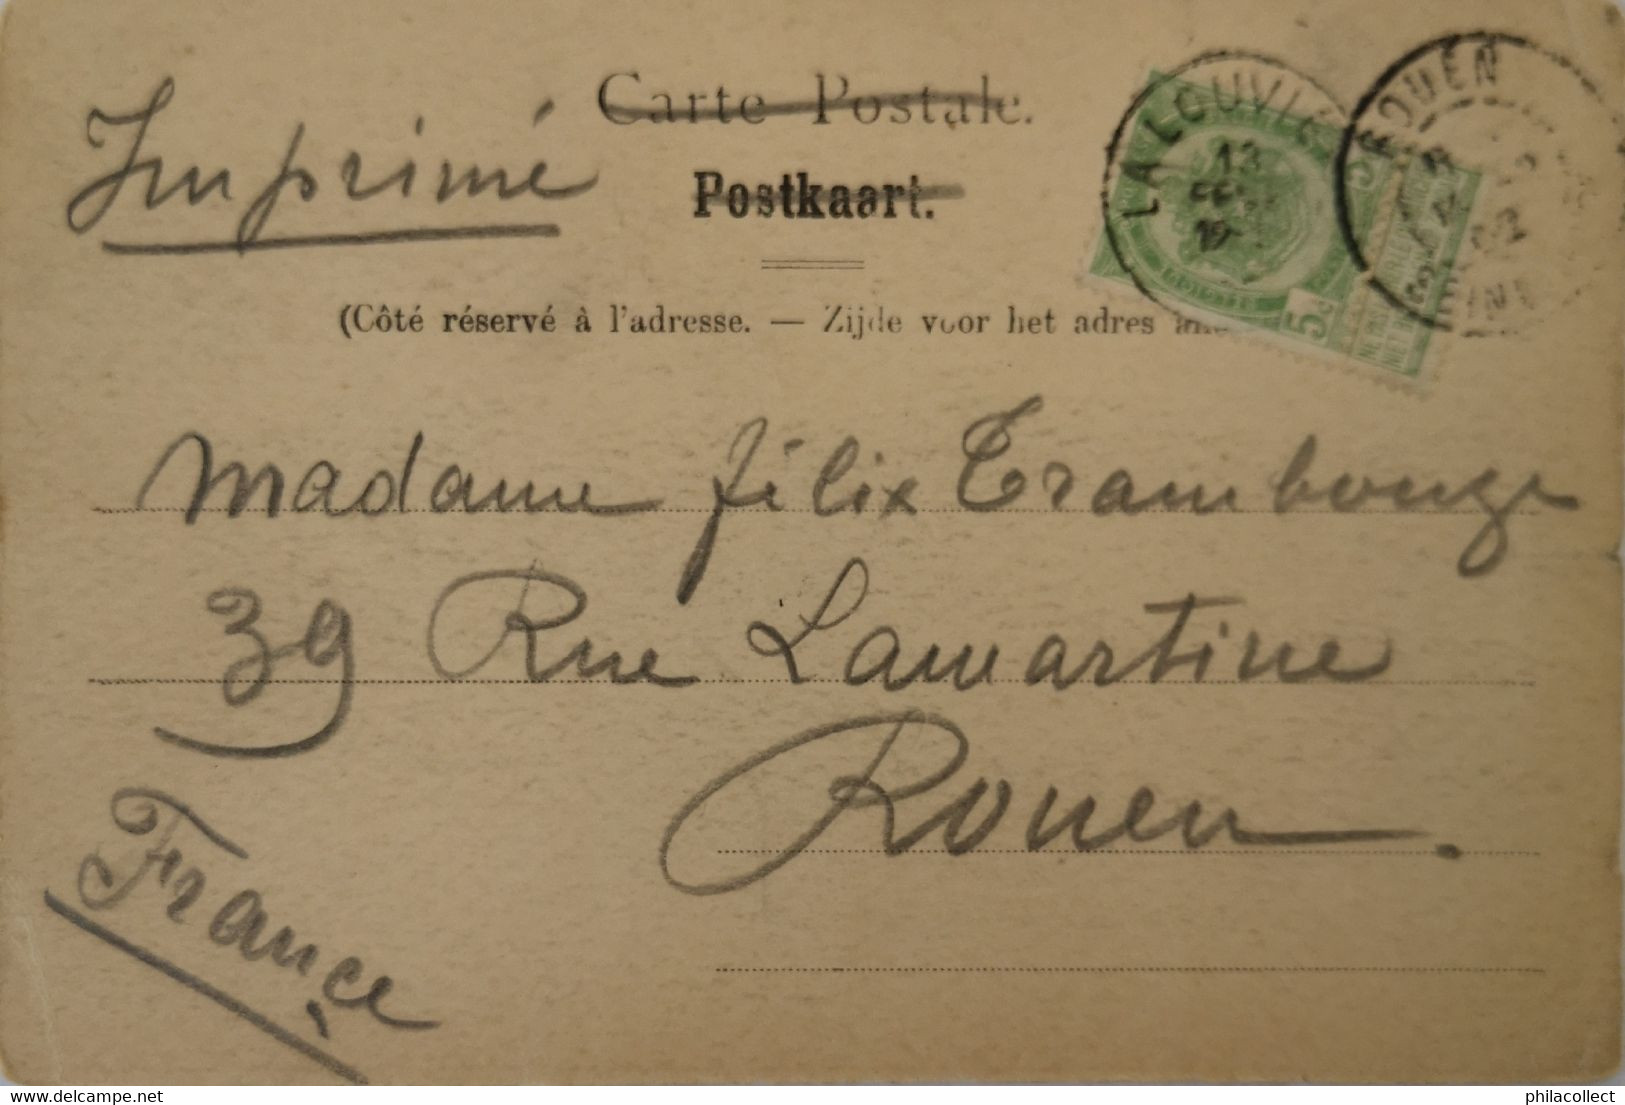 Imprimé
Carte Postale.
Postkaart.
(Côté réservé à l'adresse. — Zijde voor het adres
LA LOUVIÈ
13
ROUEN
5c
NE PAS
NIET
Madame félix Trambouze
39 Rue Lamartine
Rouen.
France
delcampe.net
philacollect